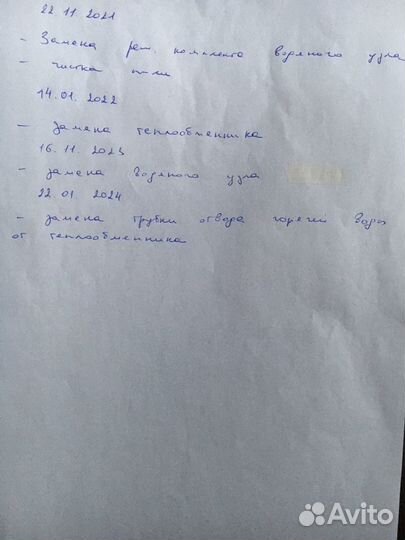 22.11.2021
- Замена рем. комплекта водяного узла
- чистка т-ли
14.01.2022
- Замена теплообменника
16.11.2023
- Замена водяного узла
22.01.2024
- Замена трубки отвода горячей воды
от теплообменника
Avito